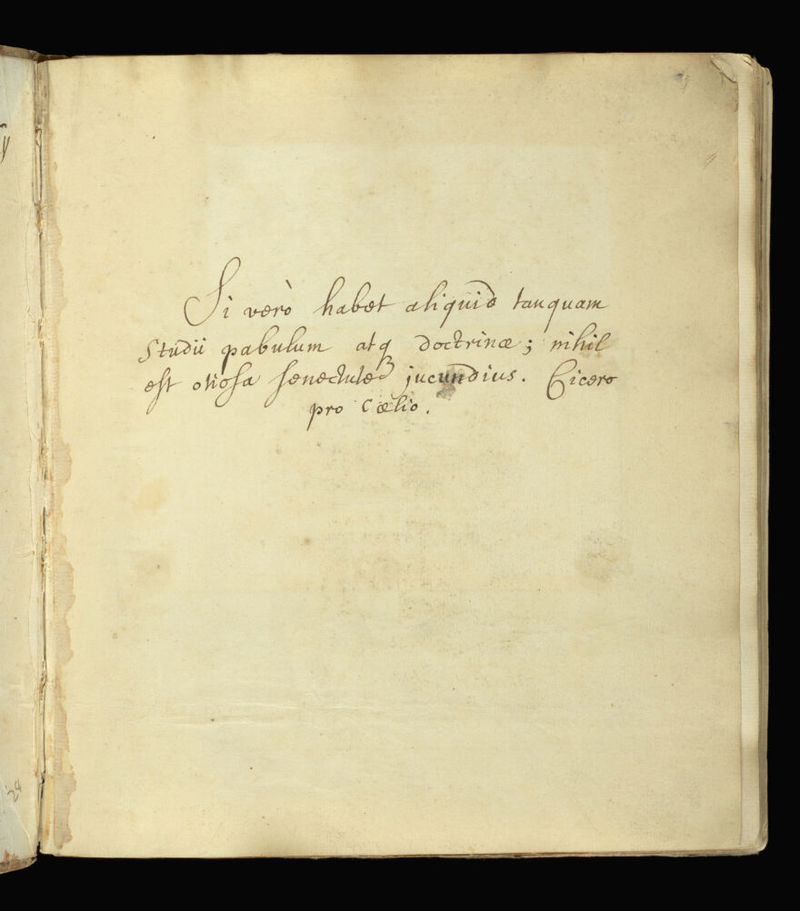 Si verò habet aliquid tanquam
Studii pabulum atq doctrinæ; nihil
est otiosa senectute jucundius. Cicero
pro Cælio.
24